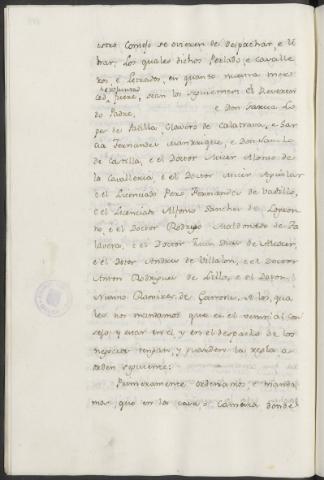 estro Consejo se ovieren de despachar, e li
brar; Los quales dichos Perlado, e Cavalle
ros, e Letrados, en quanto nuestra mer
ced, e voluntad fuere, sean los siguientes: el Reveren
do Padre, e Don Garcia Lo
pez de Padilla, Clavero de Calatrava, e Gar
cia Fernandez Manrrique, e Don Sancho
de Castilla, e el Doctor Micer Alonso de
la Cavalleria, e el Doctor Micer Aguilar
e el Licenciado Pero Fernandez de Vadillo,
e el Licenciado Alfonso Sanchez de Logron
no, e el Doctor Rodrigo Maldonado de Ta
lavera, e el Doctor Juan Diaz de Alcocer,
e el Dotor Andres de Villalon, e el Doctor
Anton Rodriguez de Lillo, e el Dotor
Nunno Ramirez de Zamora, A los qua
les nos mandamos que en el venir al con
sejo, y estar en el, y en el despacho de los
negocios tengan, y guarden la regla, e
orden siguiente:
Primeramente ordenamos, e manda
mos, que en la casa o Camara donde